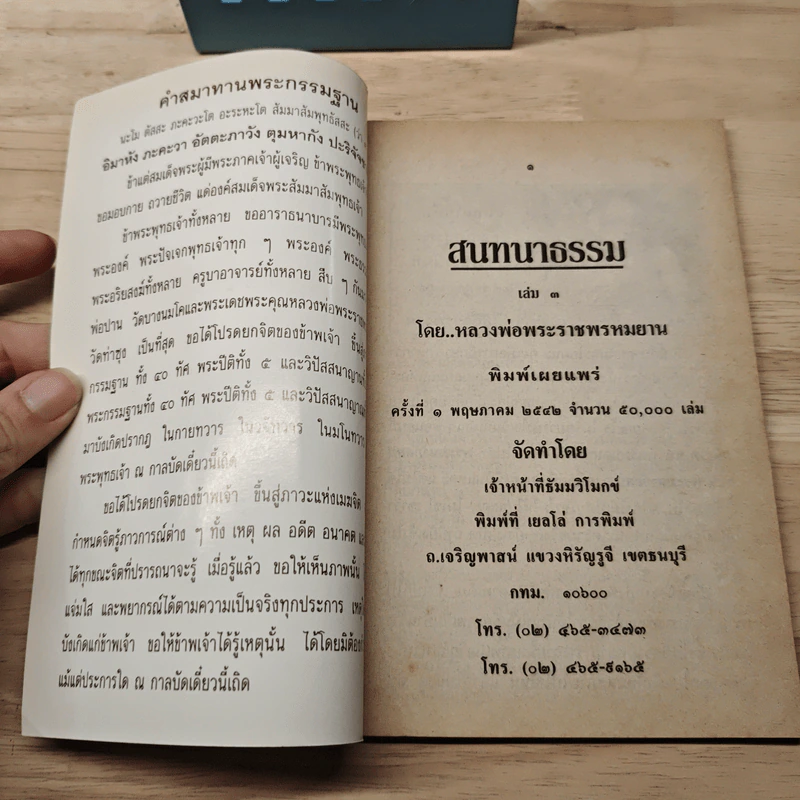 คำสมาทานพระกรรมฐาน
นะโม ตัสสะ ภะคะวะโต อะระหะโต สัมมาสัมพุทธัสสะ
อิมาหัง ภะคะวา อัตตะภาวัง ตุมหากัง
ข้าแต่สมเด็จพระผู้มีพระภาคเจ้าผู้เจริญ
ขอมอบกาย ถวายชีวิต แด่องค์สมเด็จพระสัมมาสัมพุทธเจ้า
ข้าพระพุทธเจ้าทั้งหลาย ขออาราธนาบารมี
พระองค์ พระปัจเจกพุทธเจ้าทุก ๆ พระองค์
พระอริยสงฆ์ทั้งหลาย ครูบาอาจารย์ทั้งหลาย สืบ ๆ
พ่อปาน วัดบางนมโคและพระเดชพระคุณหลวงพ่อ
วัดท่าซุง เป็นที่สุด ขอได้โปรดยกจิตของข้าพเจ้า
กรรมฐาน ทั้ง ๔๐ ทัศ พระปีติทั้ง ๕ และวิปัสสนาญาณ
พระกรรมฐานทั้ง ๔๐ ทัศ พระปีติทั้ง ๕ และวิปัสสนาญาณ
มาบังเกิดปรากฏ ในกายทวาร ในวจีทวาร
พระพุทธเจ้า ณ กาลบัดเดี๋ยวนี้เถิด
ขอได้โปรดยกจิตของข้าพเจ้า ขึ้นสู่ภาวะแห่ง
กำหนดจิตรู้ภาวการณ์ต่าง ๆ ทั้ง เหตุ ผล อดีต อนาคต
ได้ทุกขณะจิตที่ปรารถนาจะรู้ เมื่อรู้แล้ว ขอให้เห็นภาพนั้น
แจ่มใส และพยากรณ์ได้ตามความเป็นจริงทุกประการ
บังเกิดแก่ข้าพเจ้า ขอให้ข้าพเจ้าได้รู้เหตุนั้น ได้โดยมิต้อง
แม้แต่ประการใด ณ กาลบัดเดี๋ยวนี้เถิด
๑
สนทนาธรรม
เล่ม ๓
โดย..หลวงพ่อพระราชพรหมยาน
พิมพ์เผยแพร่
ครั้งที่ ๑ พฤษภาคม ๒๕๔๒ จำนวน ๕๐,๐๐๐ เล่ม
จัดทำโดย
เจ้าหน้าที่ธัมมวิโมกข์
พิมพ์ที่ เยลโล่ การพิมพ์
ถ.เจริญพาสน์ แขวงหิรัญรูจี เขตธนบุรี
กทม. ๑๐๖๐๐
โทร. (๐๒) ๔๖๕-๓๔๗๓
โทร. (๐๒) ๔๖๕-๙๑๖๕